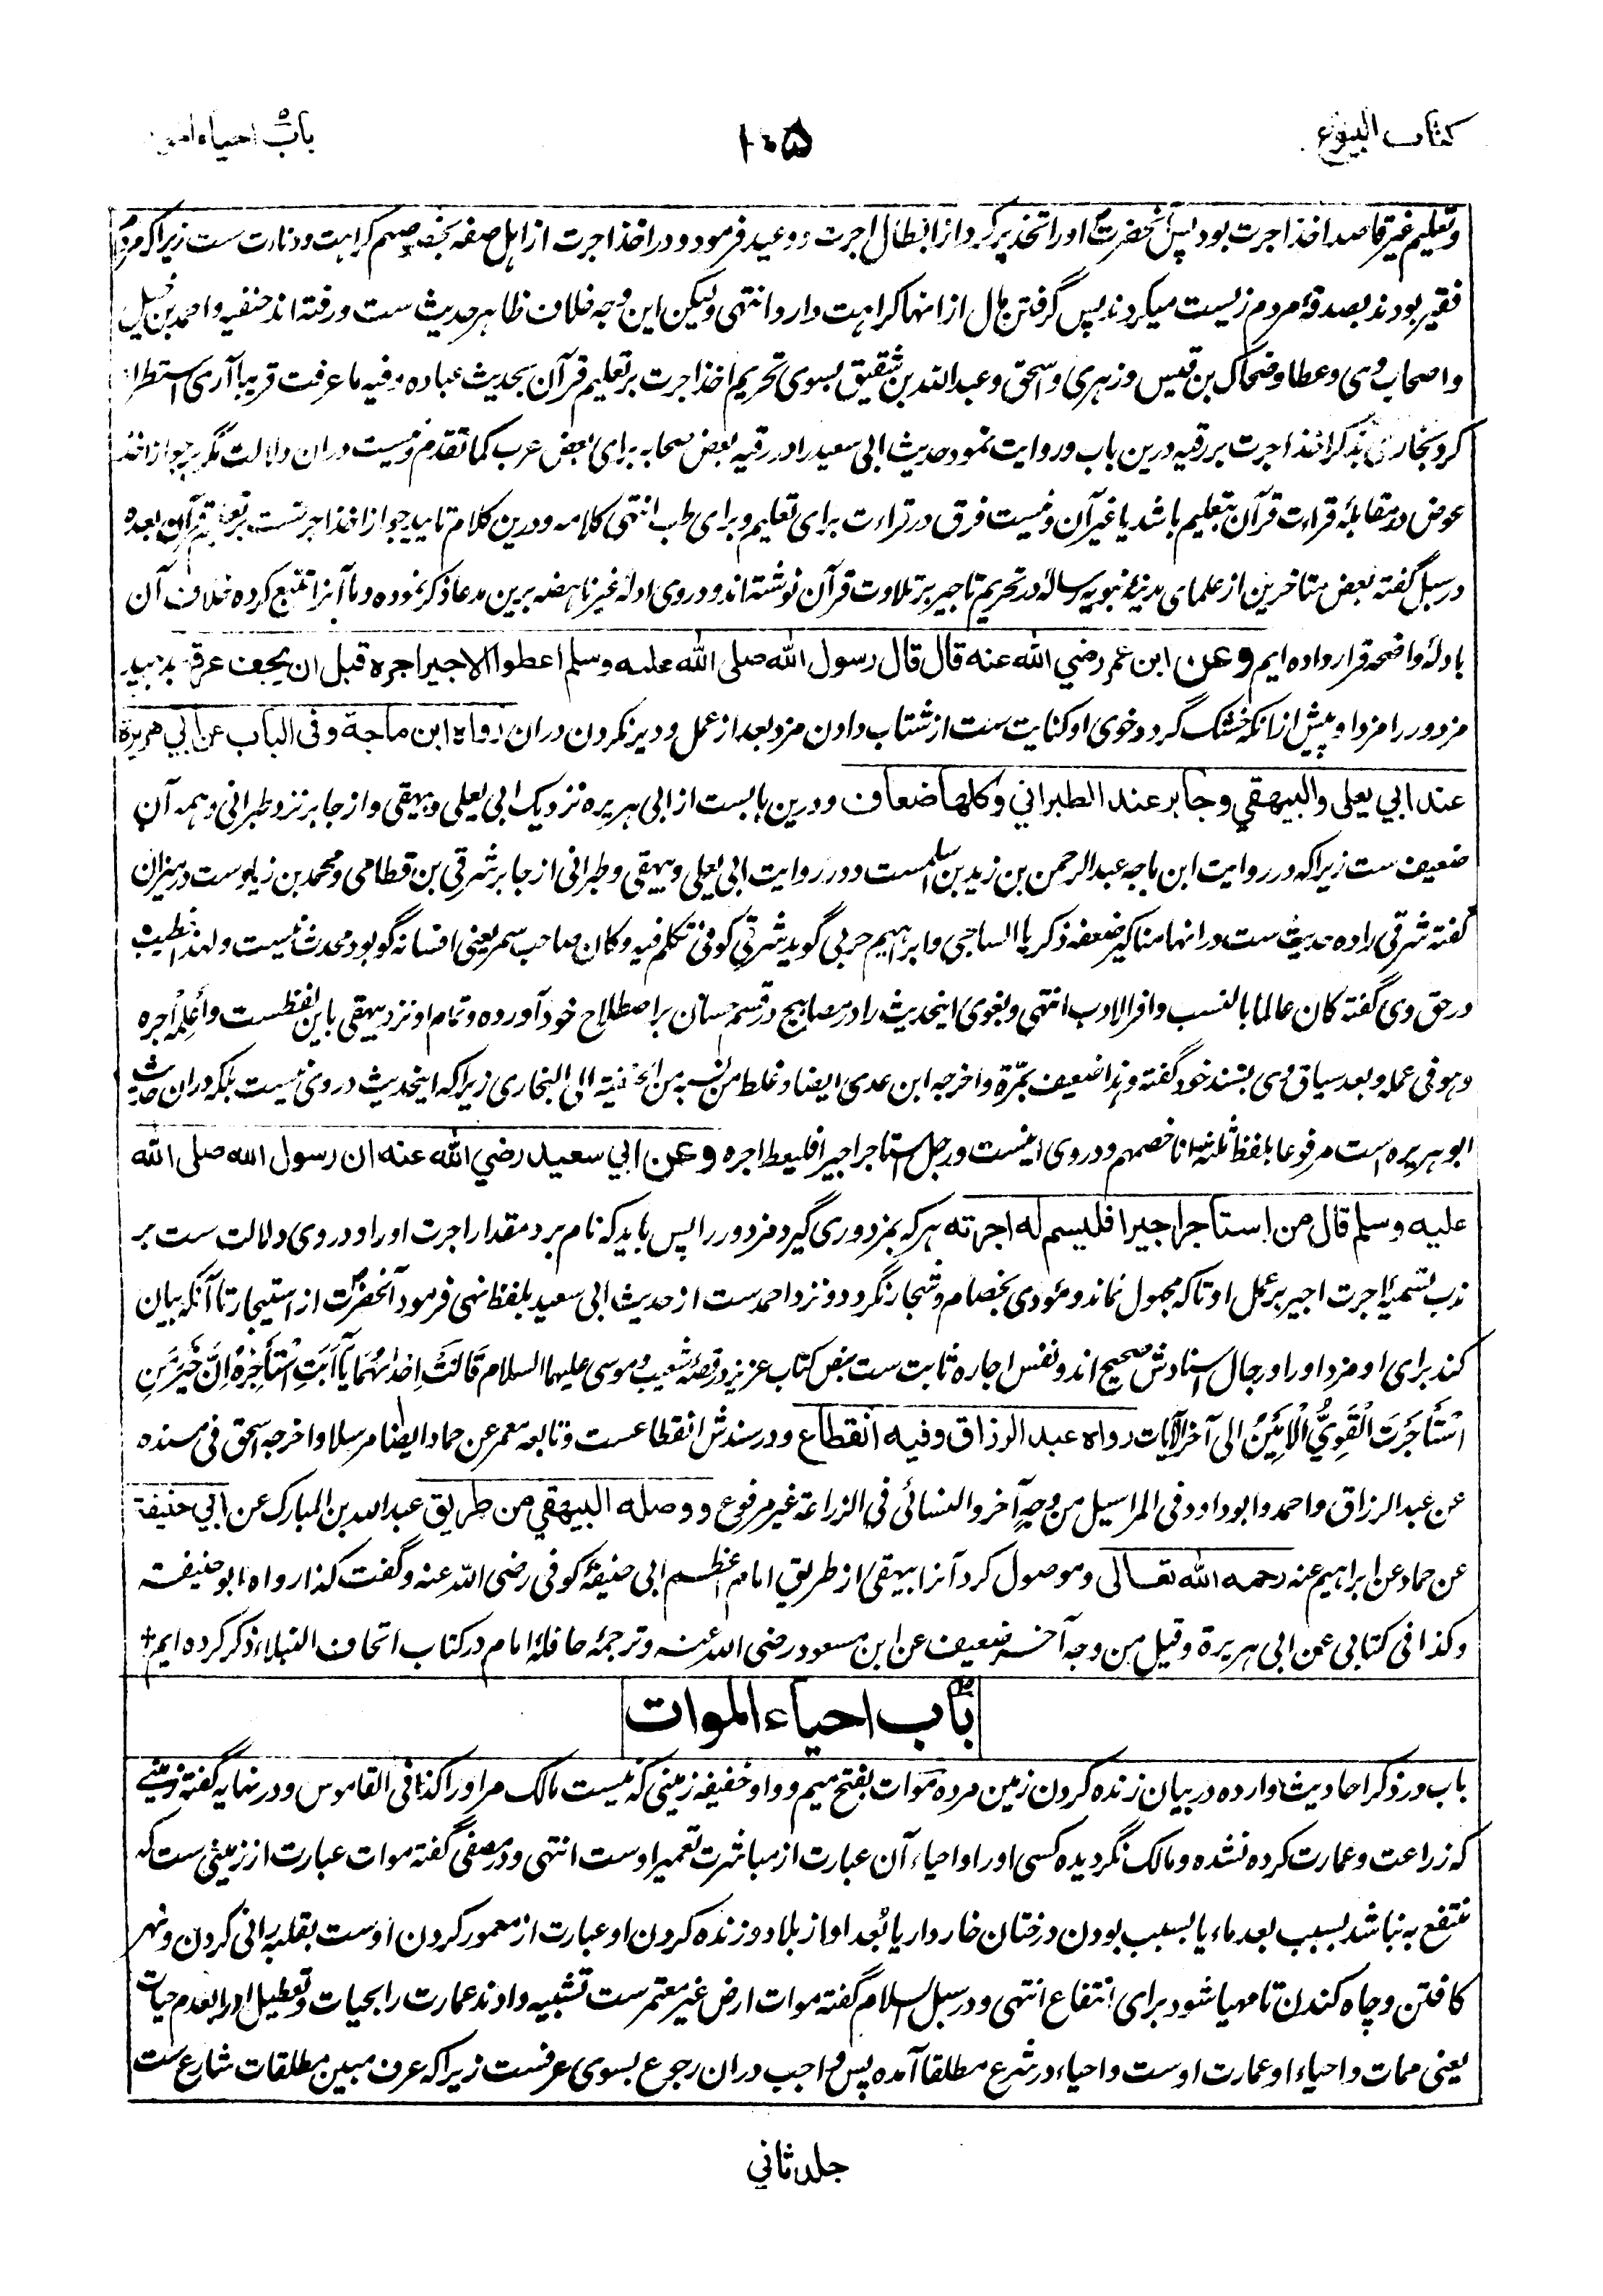 كتاب البيوع
۱۰۵
باب احياء
وتعلیم غیر قاصد اخذ اجرت بود پس آنحضرت اورا تحذیر کرد از ابطال اجرت و وعید فرمود و در اخذ اجرت از اہل صفہ بخصوصہم کراہت و دنارت ست زیراکہ مردم
فقیر بودند بصدقۂ مردم زیست میکردند پس گرفتن مال از انہا کراہت دارد انتہی ولیکن این وجہ خلاف ظاہر حدیث ست ورفتہ اند حنفیہ واحمد بن حنبل
واصحاب وی وعطا وضحاک بن قیس وزہری واسحق وعبداللہ بن شقیق بسوی تحریم اخذ اجرت بر تعلیم قرآن بحدیث عبادہ وفیہ ما عرفت قریبا آری استطراد
کرد بخاری بذکر اخذ اجرت بر رقیہ درین باب وروایت نمود حدیث ابی سعید را در رقیہ بعض صحابہ برای بعض عرب کما تقدم ونیست دران دلالت مگر بر جواز اخذ
عوض در مقابلۂ قراءت قرآن بتعلیم باشد یا غیر آن ونیست فرق در قراءت برای تعلیم وبرای طب انتہی کلامہ ودرین کلام تایید جواز اخذ اجرتست بر تعلیم قرآن بعدہ
در سبل گفتہ بعض متاخرین از علمای مدینۂ نبویہ رسالہ در تحریم تاجیر بر تلاوت قرآن نوشتہ اند ودر وی ادلۂ غیر ناہضہ برین مدعا ذکر نمودہ وما آنرا تتبع کردہ خلاف آن
بادلۂ واضحہ قرار دادہ ایم وعن ابن عمر رضي الله عنه قال قال رسول الله صلى الله عليه وسلم اعطوا الاجير اجره قبل ان يجف عرقه بدہید
مزدور را مزد او پیش از انکہ خشک گردد خوی او کنایت ست از شتاب دادن مزد بعد از عمل ودیر نکردن دران رواه ابن ماجة وفى الباب عن ابي هريرة
عند ابي يعلى والبيهقي وجابر عند الطبراني وكلها ضعاف ودرین بابست از ابی ہریرہ نزدیک ابی یعلی وبیہقی واز جابر نزد طبرانی وہمہ آن
ضعیف ست زیراکہ در روایت ابن ماجہ عبدالرحمن بن زید بن اسلمست ودر روایت ابی یعلی وبیہقی وطبرانی از جابر شرقی بن قطامی ومحمد بن زیادست در میزان
گفتہ شرقی را دہ حدیث ست درانہا مناکیر ضعفہ زکریا الساجی وابراہیم حربی گوید شرقی کوفی تکلم فیہ وکان صاحب سمر یعنی افسانہ گو بود محدث نیست ولہذا خطیب
در حق وی گفتہ کان عالما بالنسب وافر الادب انتہی وبغوی اینحدیث را در مصابیح در قسم حسان بر اصطلاح خود آوردہ وتمام او نزد بیہقی باین لفظست وأعلمہ أجرہ
وہو فی عملہ وبعد سیاق وی بسند خود گفتہ وہذا ضعیف بمرۃ واخرجہ ابن عدی ایضا وغلط من نسبہ من الحنفیۃ الی البخاری زیراکہ اینحدیث دروی نیست بلکہ دران حدیث
ابوہریرہ است مرفوعا بلفظ ثلثۃ انا خصمہم ودروی اینست ورجل استاجر اجیرا فلیعط اجرہ وعن ابي سعيد رضي الله عنه ان رسول الله صلى الله
عليه وسلم قال من استاجر اجيرا فليسم له اجرته ہرکہ بمزدوری گیرد مزدور را پس باید کہ نام برد مقدار اجرت اورا ودروی دلالت ست بر
ندب تسمیۂ اجرت اجیر بر عمل او تاکہ مجہول نماند ومؤدی بخصام وشجار نگردد ونزد احمدست از حدیث ابی سعید بلفظ نہی فرمود آنحضرت از استیجار تا آنکہ بیان
کند برای او مزد اورا ورجال اسنادش صحیح اند ونفس اجارہ ثابت ست بنص کتاب عزیز در قصۂ شعیب وموسی علیہما السلام قَالَتْ اِحْدٰىهُمَا يٰٓاَبَتِ اسْتَاْجِرْهُ اِنَّ خَيْرَ مَنِ
اسْتَأْجَرْتَ الْقَوِيُّ الْاَمِيْنُ الی آخر الآیات رواه عبد الرزاق وفيه انقطاع ودر سندش انقطاعست وتابعہ معمر عن حماد ایضا مرسلا واخرجہ اسحق فی مسندہ
عن عبد الرزاق واحمد وابوداود فی المراسیل من وجہ آخر والنسائی فی الزراعۃ غیر مرفوع ووصله البيهقي من طريق عبدالله بن المبارک عن ابي حنيفة
عن حماد عن ابراہیم عنہ رحمه الله تعالى وموصول کرد آنرا بیہقی از طریق امام اعظم ابی حنیفۂ کوفی رضی اللہ عنہ وگفت کذا رواہ ابو حنیفۃ
وکذا فی کتابی عن ابی ہریرۃ وقیل من وجہ آخر ضعیف عن ابن مسعود رضی اللہ عنہ وترجمۂ حافلۂ امام در کتاب اتحاف النبلاء ذکر کردہ ایم
باب احياء الموات
باب در ذکر احادیث واردہ در بیان زندہ کردن زمین مردہ موات بفتح میم وواو خفیفہ زمینی کہ نیست مالک مر اورا کذا فی القاموس ودر نہایہ گفتہ زمینی
کہ زراعت وعمارت کردہ نشدہ ومالک نگردیدہ کسی اورا واحیاء آن عبارت از مباشرت تعمیر اوست انتہی ودر مصفی گفتہ موات عبارت از زمینی ست کہ
منتفع بہ نباشد بسبب بعد ماء یا بسبب بودن درختان خاردار یا بُعد او از بلاد وزندہ کردن او عبارت از معمور کردن اوست بقلبہ رانی کردن ونہر
کافتن وچاہ کندن تا مہیا شود برای انتفاع انتہی ودر سبل السلام گفتہ موات ارض غیر معتمرست تشبیہ دادند عمارت را بحیات وتعطیل اورا بعدم حیات
یعنی ممات واحیاء او عمارت اوست واحیاء در شرع مطلقا آمدہ پس واجب دران رجوع بسوی عرفست زیراکہ عرف مبین مطلقات شارع ست
جلد ثاني